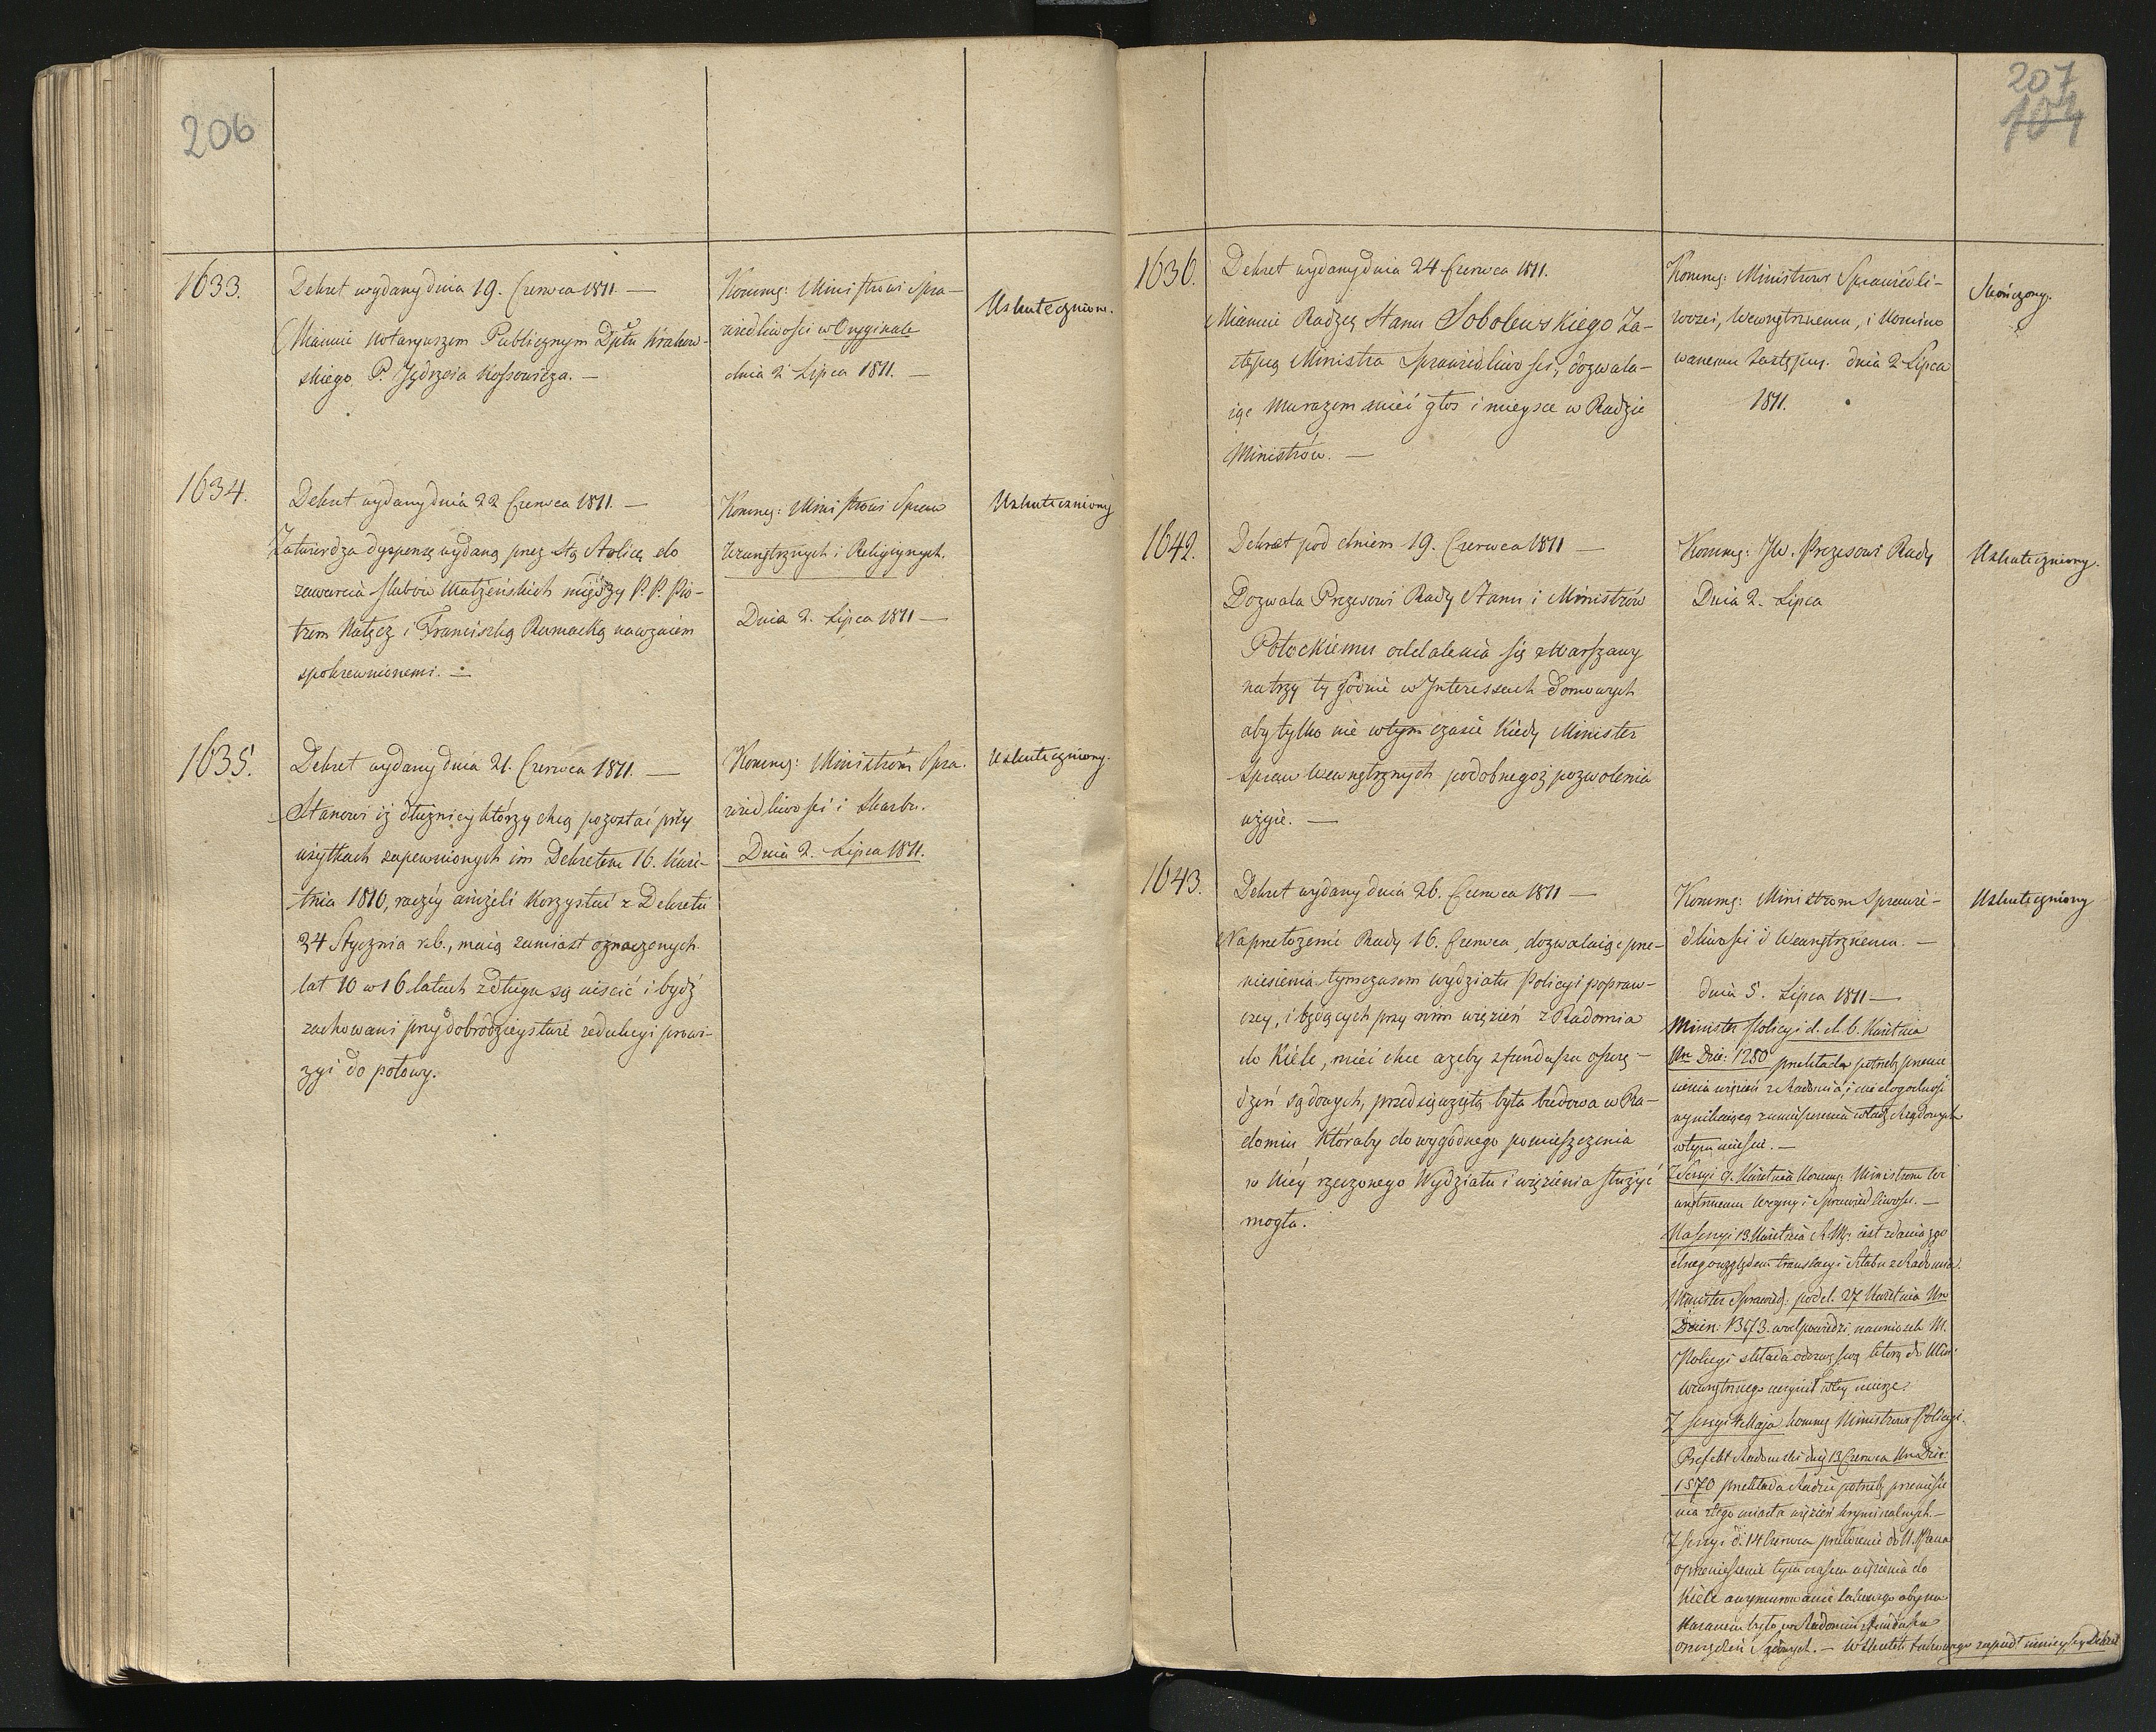 206
1633.
Dekret wydany dnia 19. Czerwca 1811 —
Mianuie Notaryuszem Publicznym Dpttu Krakow-
skiego P. Jędrzeia Kossowicza. —
Kommg: Ministrowi Spra-
wiedliwości w Oryginale
dnia 2 Lipca 1811. —
Uskuteczniony.
1634.
Dekret wydany dnia 22 Czerwca 1811. —
Zatwierdza dyspensę wydaną przez Stą Stolicę do
zawarcia slubów Małżeńskich między P. P. Pio-
trem Nałęcz i Franciszką nawzaiem
spokrewnionemi. —
Kommg: Ministrowi Spraw
Wewnętrznych i Religiynych.
Dnia 2. Lipca 1811 —
Uskuteczniony
1635.
Dekret wydany dnia 21. Czerwca 1811. —
Stanowi iż dłużnicy którzy chcą pozostać przy
użytkach zapewnionych im Dekretem 16. Kwie-
tnia 1810, raczéy aniżeli korzystać z Dekretu
24 Stycznia r.b., maią zamiast oznaczonych
lat 10 w 16 latach z długu się uiścić i bydź
zachowani przy dobrodzieystwie redukcyi prowi-
zyi do połowy.
Kommg: Ministrom Spra-
wiedliwości i Skarbu.
Dnia 2. Lipca 1811.
Uskuteczniony.
207
104
1636.
Dekret wydany dnia 24 Czerwca 1811.
Mianuie Radzcę Stanu Sobolewskiego Za-
stępcą Ministra Sprawiedliwości, dozwala-
iąc mu razem mieć głos i mieysce w Radzie
Ministrów. —
Kommg: Ministrowi Sprawiedli-
wości, Wewnętrznemu, i Nomino
wanemu Zastępcy. dnia 2 Lipca
1811.
Skończony.
1642.
Dekret pod dniem 19. Czerwca 1811 —
Dozwala Prezesowi Rady Stanu i Ministrów
Potockiemu oddalenia się z Warszawy
na trzy tygodnie w Interessach Domowych
aby tylko nie w tym czasie kiedy Minister
Spraw Wewnętrznych podobnegoż pozwolenia
użyie. —
Kommg: JW. Prezesowi Rady
Dnia 2. Lipca
Uskuteczniony.
1643.
Dekret wydany dnia 26. Czerwca 1811 —
Na przełożenie Rady 16. Czerwca, dozwalaiąc prze-
niesienia tymczasem wydziału Policyi popraw-
czey, i będących przy nim więzień z Radomia
do Kielc, mieć chce ażeby z funduszu oszczę-
dzeń sądowych, przedsięwzięta była budowa w Ra-
domiu któraby do wygodnego pomieszczenia
w niéy rzeczonego Wydziału i więzienia służyć
mogła.
Kommg: Ministrom Sprawie-
dliwości i Wewnętrznemu. —
dnia 5. Lipca 1811 —
Minister Policyi d. d. 6. Kwietnia
Nr Dzie: 1280 przekłada potrzebę przenie
sienia więzień z Radomia i niedogodność
wynikaiącą z umieszczenia władz Rządowych
w tym mieście. —
Z Sessyi 9. Kwietnia Kommg: Ministrom We
wnętrznemu Woyny i Sprawiedliwości. —
Na sessyi 13. Kwietnia R. Mg: iest zdania zgo
dnego względem translacyi Sztabu z Radomia.
Minister Sprawied: pod d. 27 Kwietnia Nro
Dzien: 13673. w odpowiedzi na wniosek M.
Policyi składa odezwę swą którą do Min:
Wewnętrznego uczynił w tey mierze.
Z sessyi 4 Maja Kommg Ministrowi Policyi.
Prefekt Radomski dnia 13 Czerwca Nro Dzie:
1570 przekłada Radzie potrzebę przeniesie
nia z tego miasta więzień kryminalnych. —
Z sessyi d. 14 Czerwca przełożenie do N. Pana
o przeniesienie tymczasem więzienia do
Kielc a wymurowanie takowego aby na
kazanem było w Radomiu z funduszu
oszczędzeń Sądowych. — W skutek takowego zapadł ninieyszy Dekret